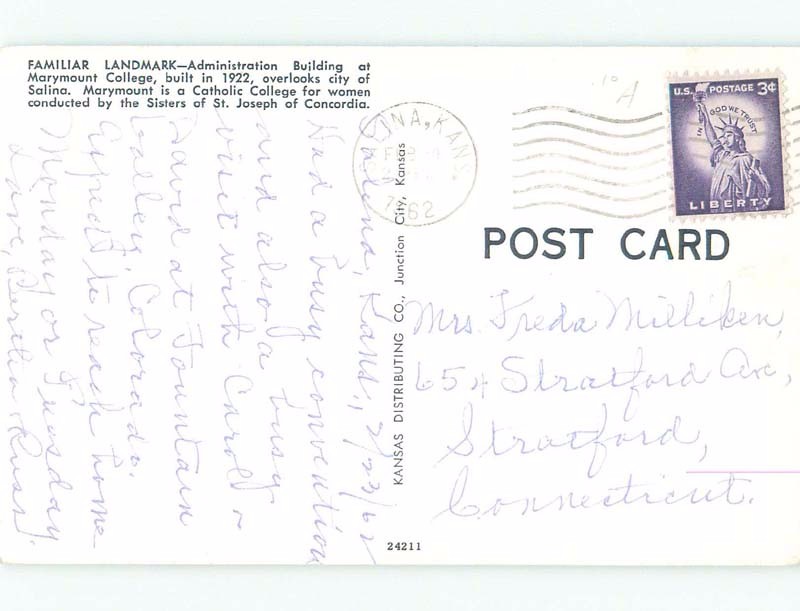 FAMILIAR LANDMARK—Administration Building at
Marymount College, built in 1922, overlooks city of
Salina. Marymount is a Catholic College for women
conducted by the Sisters of St. Joseph of Concordia.
SALINA, KANS
1962
U.S. POSTAGE 3¢
IN GOD WE TRUST
LIBERTY
POST CARD
Salina, Kans., 2/23/62
Had a busy convention
and also a busy
visit with Carol ~
David at Fountain
Valley, Colorado.
Expect to reach home
Monday or Tuesday
Love, Bertha
KANSAS DISTRIBUTING CO., Junction City, Kansas
Mrs. Freda Milliken,
654 Stratford Ave,
Stratford,
Connecticut.
24211